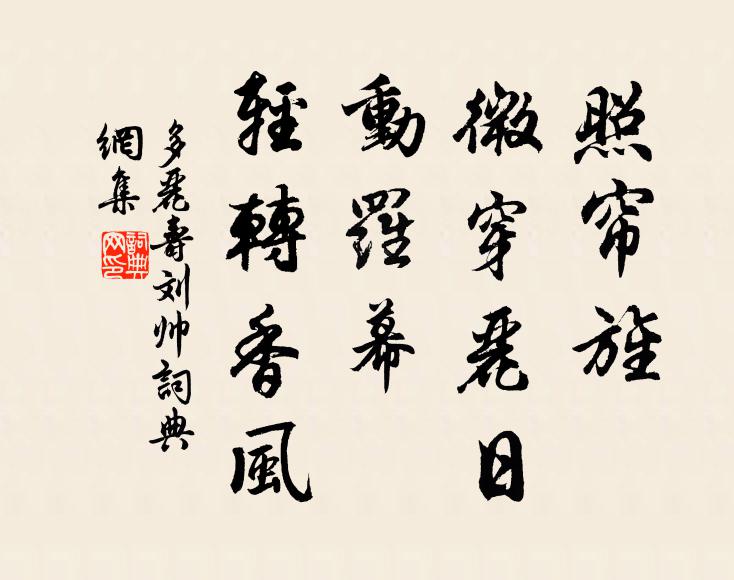 照帘旌
微穿麗日
動羅幕
輕轉香風
多麗壽刘帅詞典
網集
詞典
网印